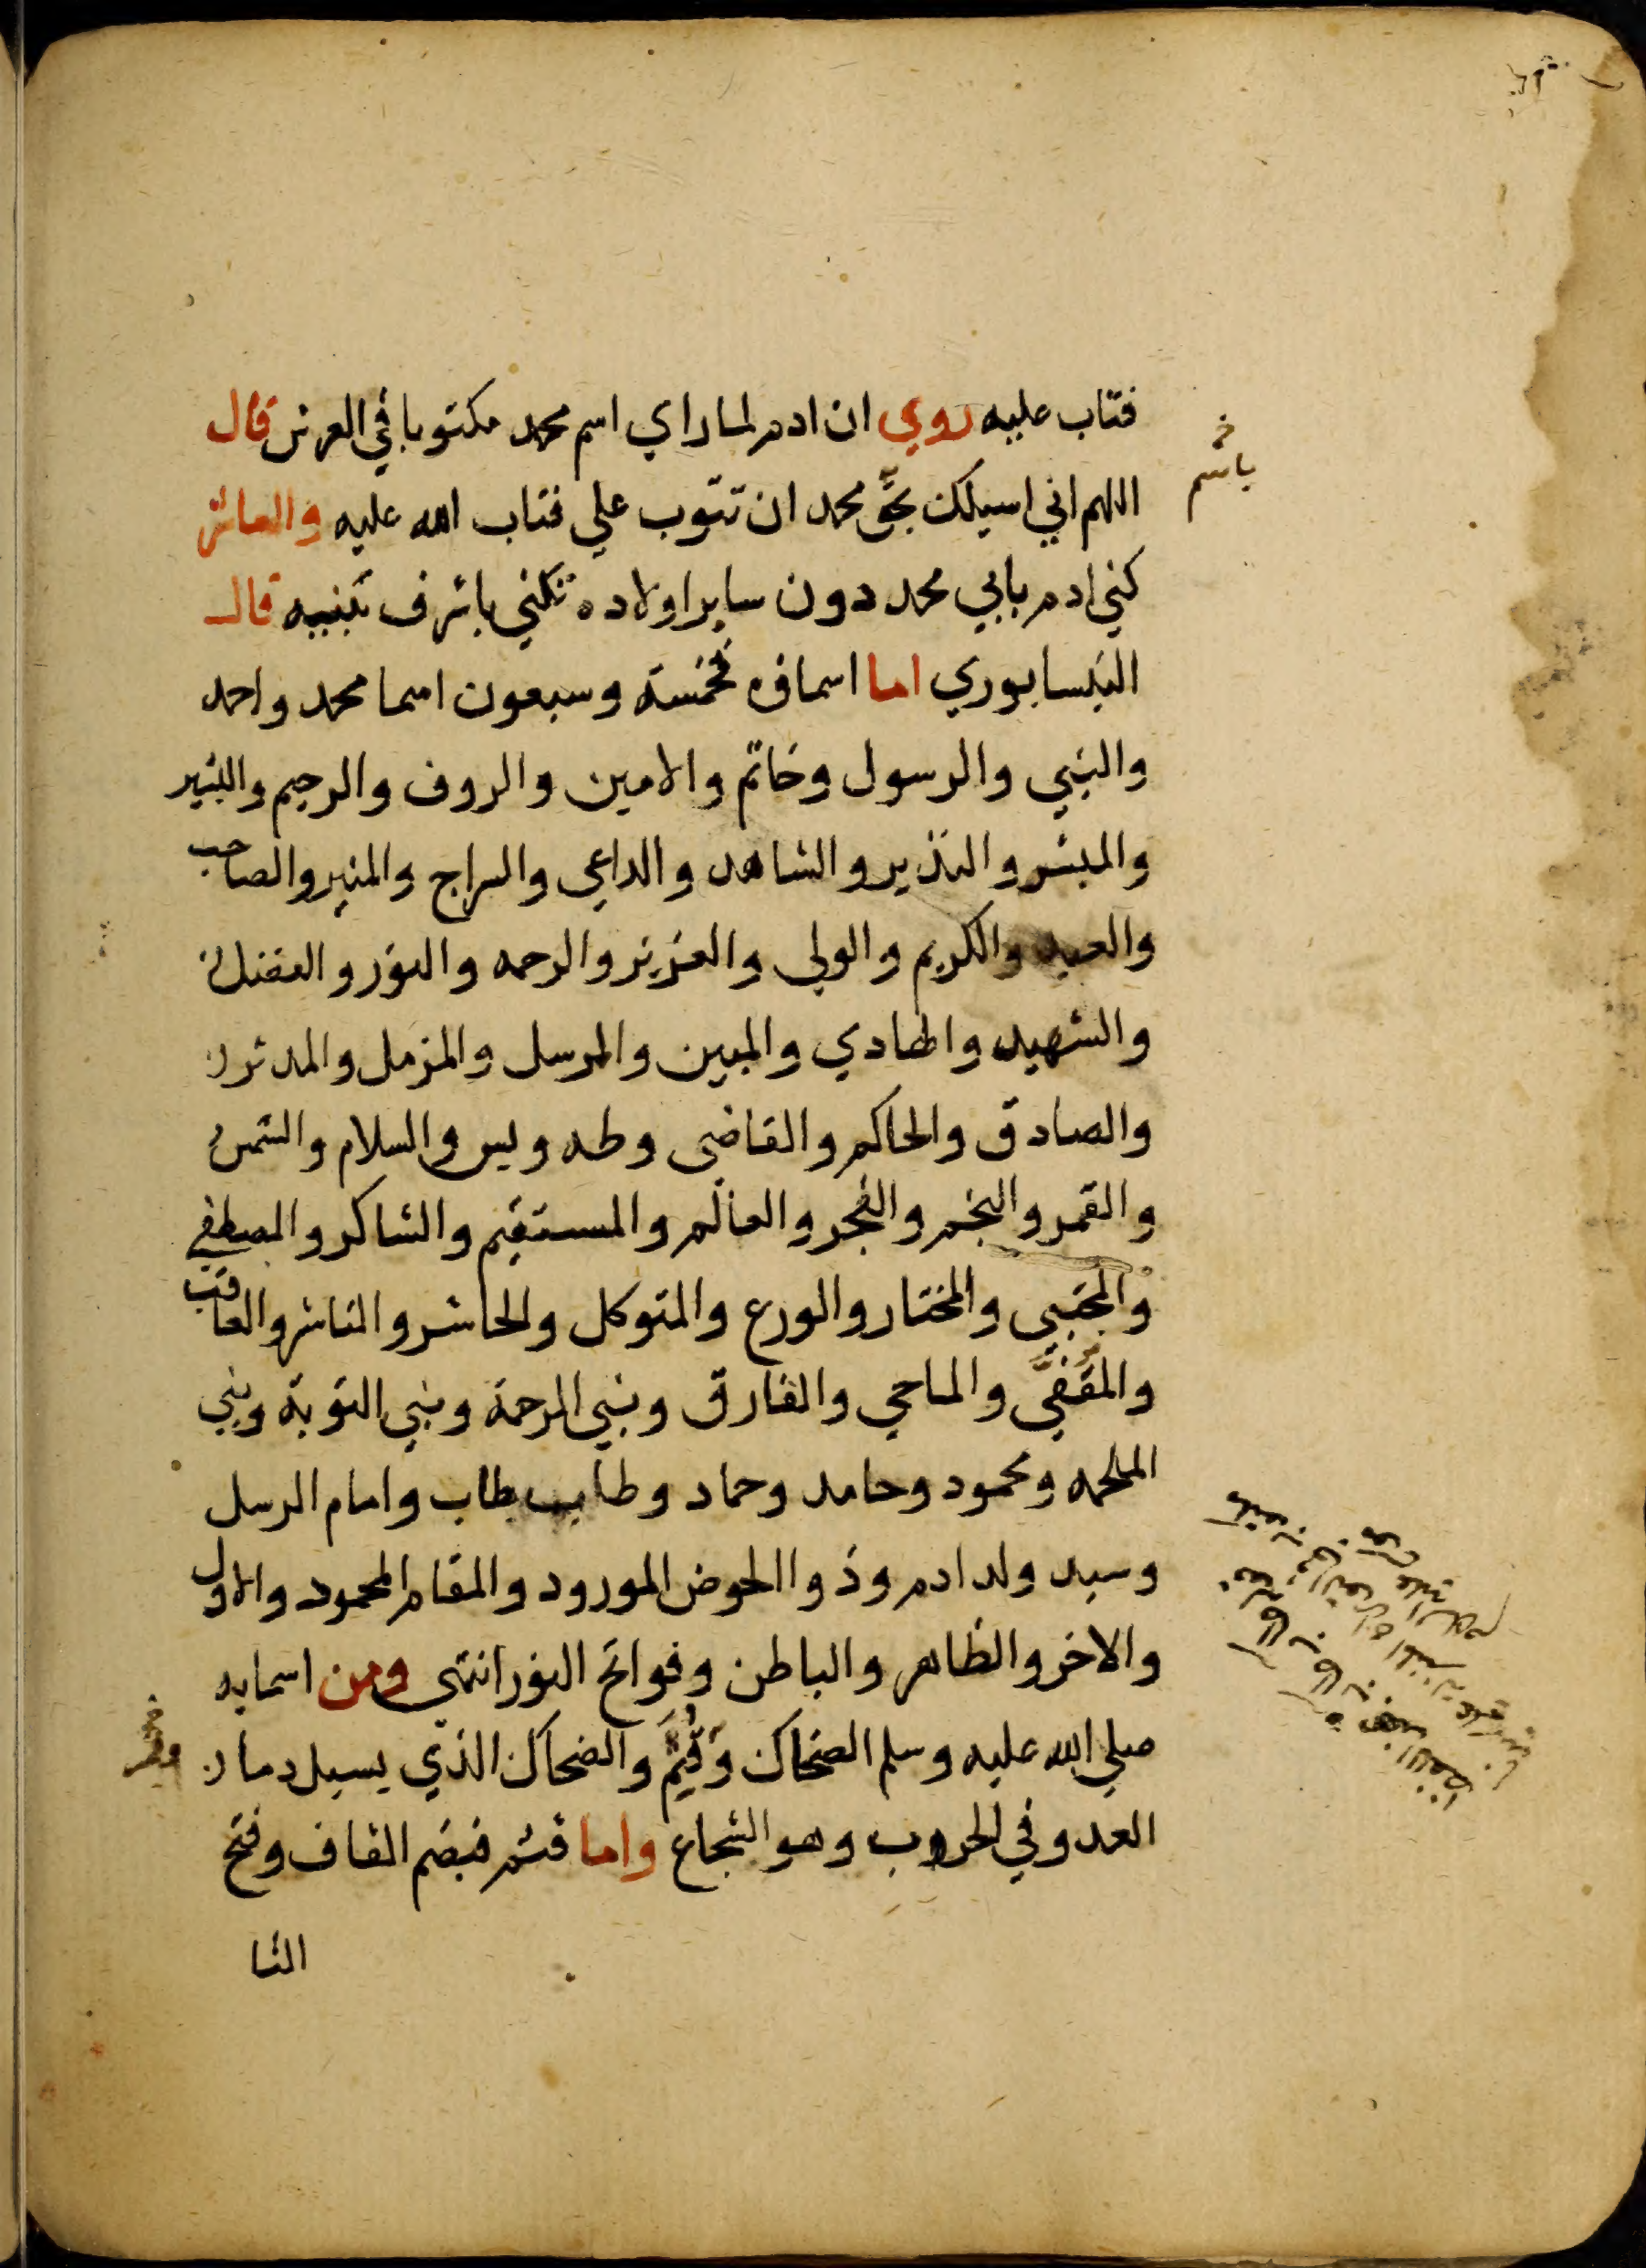 فتاب عليه روي ان ادم لما راي اسم محمد مكتوبا في العرش قال
اللهم اني اسيلك بحق محمد ان تتوب علي فتاب الله عليه والعاشر
كني ادم بابي محمد دون ساير اولاده تكني باشرف بنيه قال
النيسابوري اما اسماؤه فخمسة وسبعون اسما محمد واحمد
والنبي والرسول وخاتم والامين والروف والرحيم والبشير
والمبشر والنذير والشاهد والداعي والسراج والمنير والصاحب
والعبد والكريم والولي والعزيز والرحمه والنور والفضل
والشهيد والهادي والمبين والمرسل والمزمل والمدثر
والصادق والحاكم والقاضي وطه ويس والسلام والشمس
والقمر والنجم والفجر والعالم والمستقيم والشاكر والمصطفي
والمجتبي والمختار والورع والمتوكل والحاشر والناشر والعاقب
والمقفي والماحي والفارق ونبي الرحمة ونبي التوبة ونبي
الملحمه ومحمود وحامد وحماد وطاب طاب وامام الرسل
وسيد ولد ادم وذو الحوض المورود والمقام المحمود والاول
والاخر والظاهر والباطن وفواتح النور انتهي ومن اسمايه
صلي الله عليه وسلم الضحاك وقثم والضحاك الذي يسيل دما
العدو في الحروب وهو الشجاع واما قثم فبضم القاف وفتح
الثا
باسم